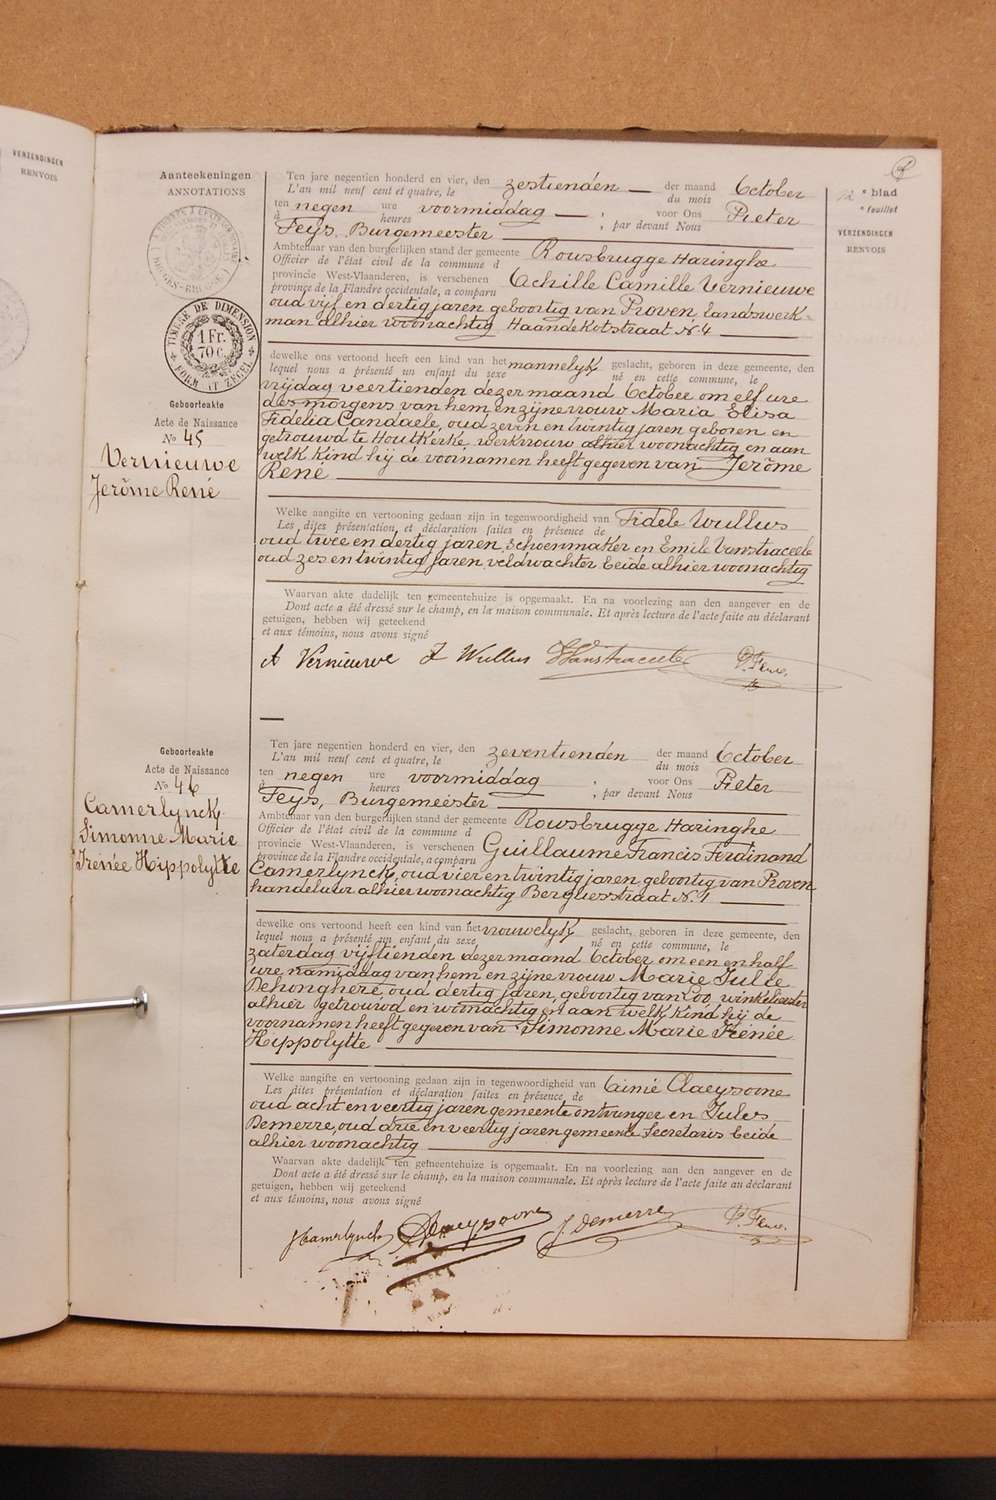 VERZENDINGEN
RENVOIS
Aanteekeningen
ANNOTATIONS
TIMBRE DE DIMENSION
1 Fr.
70 c.
FORMAAT ZEGEL
Geboorteakte
Acte de Naissance
No 45
Vernieuwe
Jerôme René
12 e blad
e feuillet
VERZENDINGEN
RENVOIS
Ten jare negentien honderd en vier, den zestienden — der maand October
L'an mil neuf cent et quatre, le du mois
ten negen ure voormiddag — , voor Ons Pieter
à heures , par devant Nous
Feys, Burgemeester
Ambtenaar van den burgerlijken stand der gemeente Rousbrugge Haringhe
Officier de l'état civil de la commune d
provincie West-Vlaanderen, is verschenen Achille Camille Vernieuwe
province de la Flandre occidentale, a comparu
oud vijf en dertig jaren geboortig van Proven, landswerk-
man alhier woonachtig Haandekotstraat N. 4
dewelke ons vertoond heeft een kind van het mannelyk geslacht, geboren in deze gemeente, den
lequel nous a présenté un enfant du sexe né en cette commune, le
vrijdag veertienden dezer maand October om elf ure
des morgens van hem en zijne vrouw Maria Elisa
Fidelia Candaele, oud zeven en twintig jaren geboren en
getrouwd te Houtkerke werkvrouw alhier woonachtig en aan
welk kind hij de voornamen heeft gegeven van Jerôme
René
Welke aangifte en vertooning gedaan zijn in tegenwoordigheid van Fidele Wullus
Les dites présentation et déclaration faites en présence de
oud twee en dertig jaren, schoenmaker en Emile Vanstraceele
oud zes en twintig jaren veldwachter beide alhier woonachtig
Waarvan akte dadelijk ten gemeentehuize is opgemaakt. En na voorlezing aan den aangever en de
Dont acte a été dressé sur le champ, en la maison communale. Et après lecture de l'acte faite au déclarant
getuigen, hebben wij geteekend
et aux témoins, nous avons signé
A Vernieuwe F Wullus Vanstraceele P. Feys.
Geboorteakte
Acte de Naissance
No 46
Camerlynck
Simonne Marie
Irenée Hippolytte
Ten jare negentien honderd en vier, den zeventienden der maand October
L'an mil neuf cent et quatre, le du mois
ten negen ure voormiddag , voor Ons Pieter
à heures , par devant Nous
Feys, Burgemeester
Ambtenaar van den burgerlijken stand der gemeente Rousbrugge Haringhe
Officier de l'état civil de la commune d
provincie West-Vlaanderen, is verschenen Guillaume Francis Ferdinand
province de la Flandre occidentale, a comparu
Camerlynck, oud vier en twintig jaren, geboortig van Proven
handelaar alhier woonachtig Berguesstraat N. 1
dewelke ons vertoond heeft een kind van het vrouwelyk geslacht, geboren in deze gemeente, den
lequel nous a présenté un enfant du sexe né en cette commune, le
zaterdag vijftienden dezer maand October om een en half
ure namiddag van hem en zijne vrouw Marie Julie
Dehonghere, oud dertig jaren, geboortig van Loo, winkelierster
alhier getrouwd en woonachtig en aan welk kind hij de
voornamen heeft gegeven van Simonne Marie Irenée
Hippolytte
Welke aangifte en vertooning gedaan zijn in tegenwoordigheid van Aimé Claeysoone
Les dites présentation et déclaration faites en présence de
oud acht en veertig jaren gemeente ontvanger en Jules
Demerre, oud drie en veertig jaren gemeente Secretaris beide
alhier woonachtig
Waarvan akte dadelijk ten gemeentehuize is opgemaakt. En na voorlezing aan den aangever en de
Dont acte a été dressé sur le champ, en la maison communale. Et après lecture de l'acte faite au déclarant
getuigen, hebben wij geteekend
et aux témoins, nous avons signé
Camerlynck Claeysoone J. Demerre P. Feys.